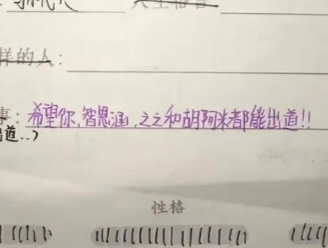 样的人：
事：希望你，智恩涵，之之和胡阿米都能出道!!
出道..?
性格